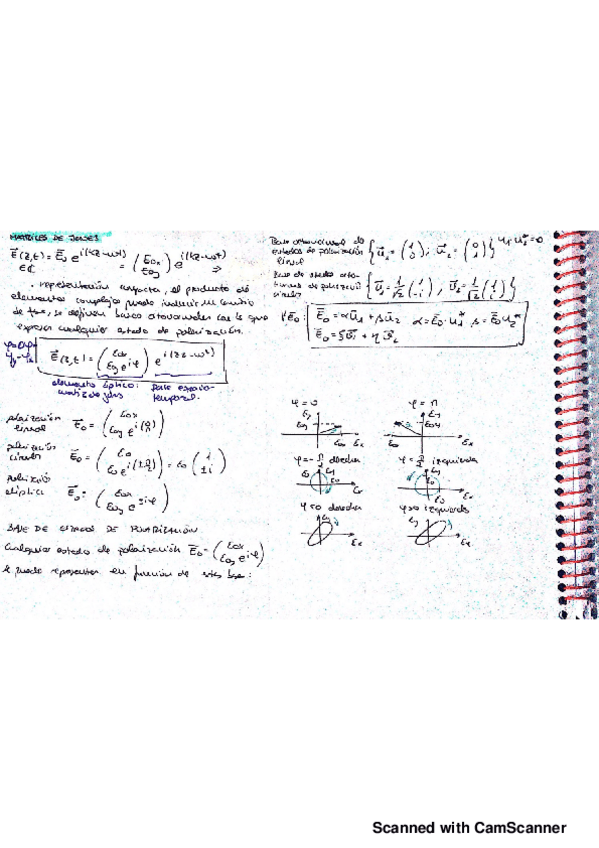 MATRICES DE JONES
E⃗(z,t) = E⃗₀ e^{i(kz-ωt)} = (E₀ₓ E₀y) e^{i(kz-ωt)} ⇒
∈ ℂ
representación compacta, el producto de
elementos complejos puede inducir un cambio
de fase, se definen bases ortonormales con lo que
expresar cualquier estado de polarización.
E⃗(z,t) = (E₀ₓ E₀y e^{iφ}) e^{i(kz-ωt)}
elemento óptico: parte espacio-
temporal.
polarización
lineal E⃗₀ = (E₀ₓ
polarización
circular E⃗₀ = = E₀ (1 ±i)
polarización
elíptica E⃗₀ =
BASE DE ESTADOS DE POLARIZACIÓN
Cualquier estado de polarización E⃗₀ = (E₀ₓ E₀y e^{iφ})
se puede representar en función de esta base:
Base ortonormal de
estados de polarización
lineal { u⃗₁ = (1 0); u⃗₂ = (0 1) }
Base de
{ v⃗₁ = 1/√2 (1 -i), v⃗₂ = 1/√2 (1 i) }
E⃗₀ = αu⃗₁ + βu⃗₂ α = E⃗₀·u⃗₁* β = E⃗₀ u⃗₂*
E⃗₀ = ξv⃗₁ + ηv⃗₂
φ = 0 φ = π
φ = -π/2 derecha φ = π/2 izquierda
φ<0 derecha φ>0 izquierda
Scanned with CamScanner